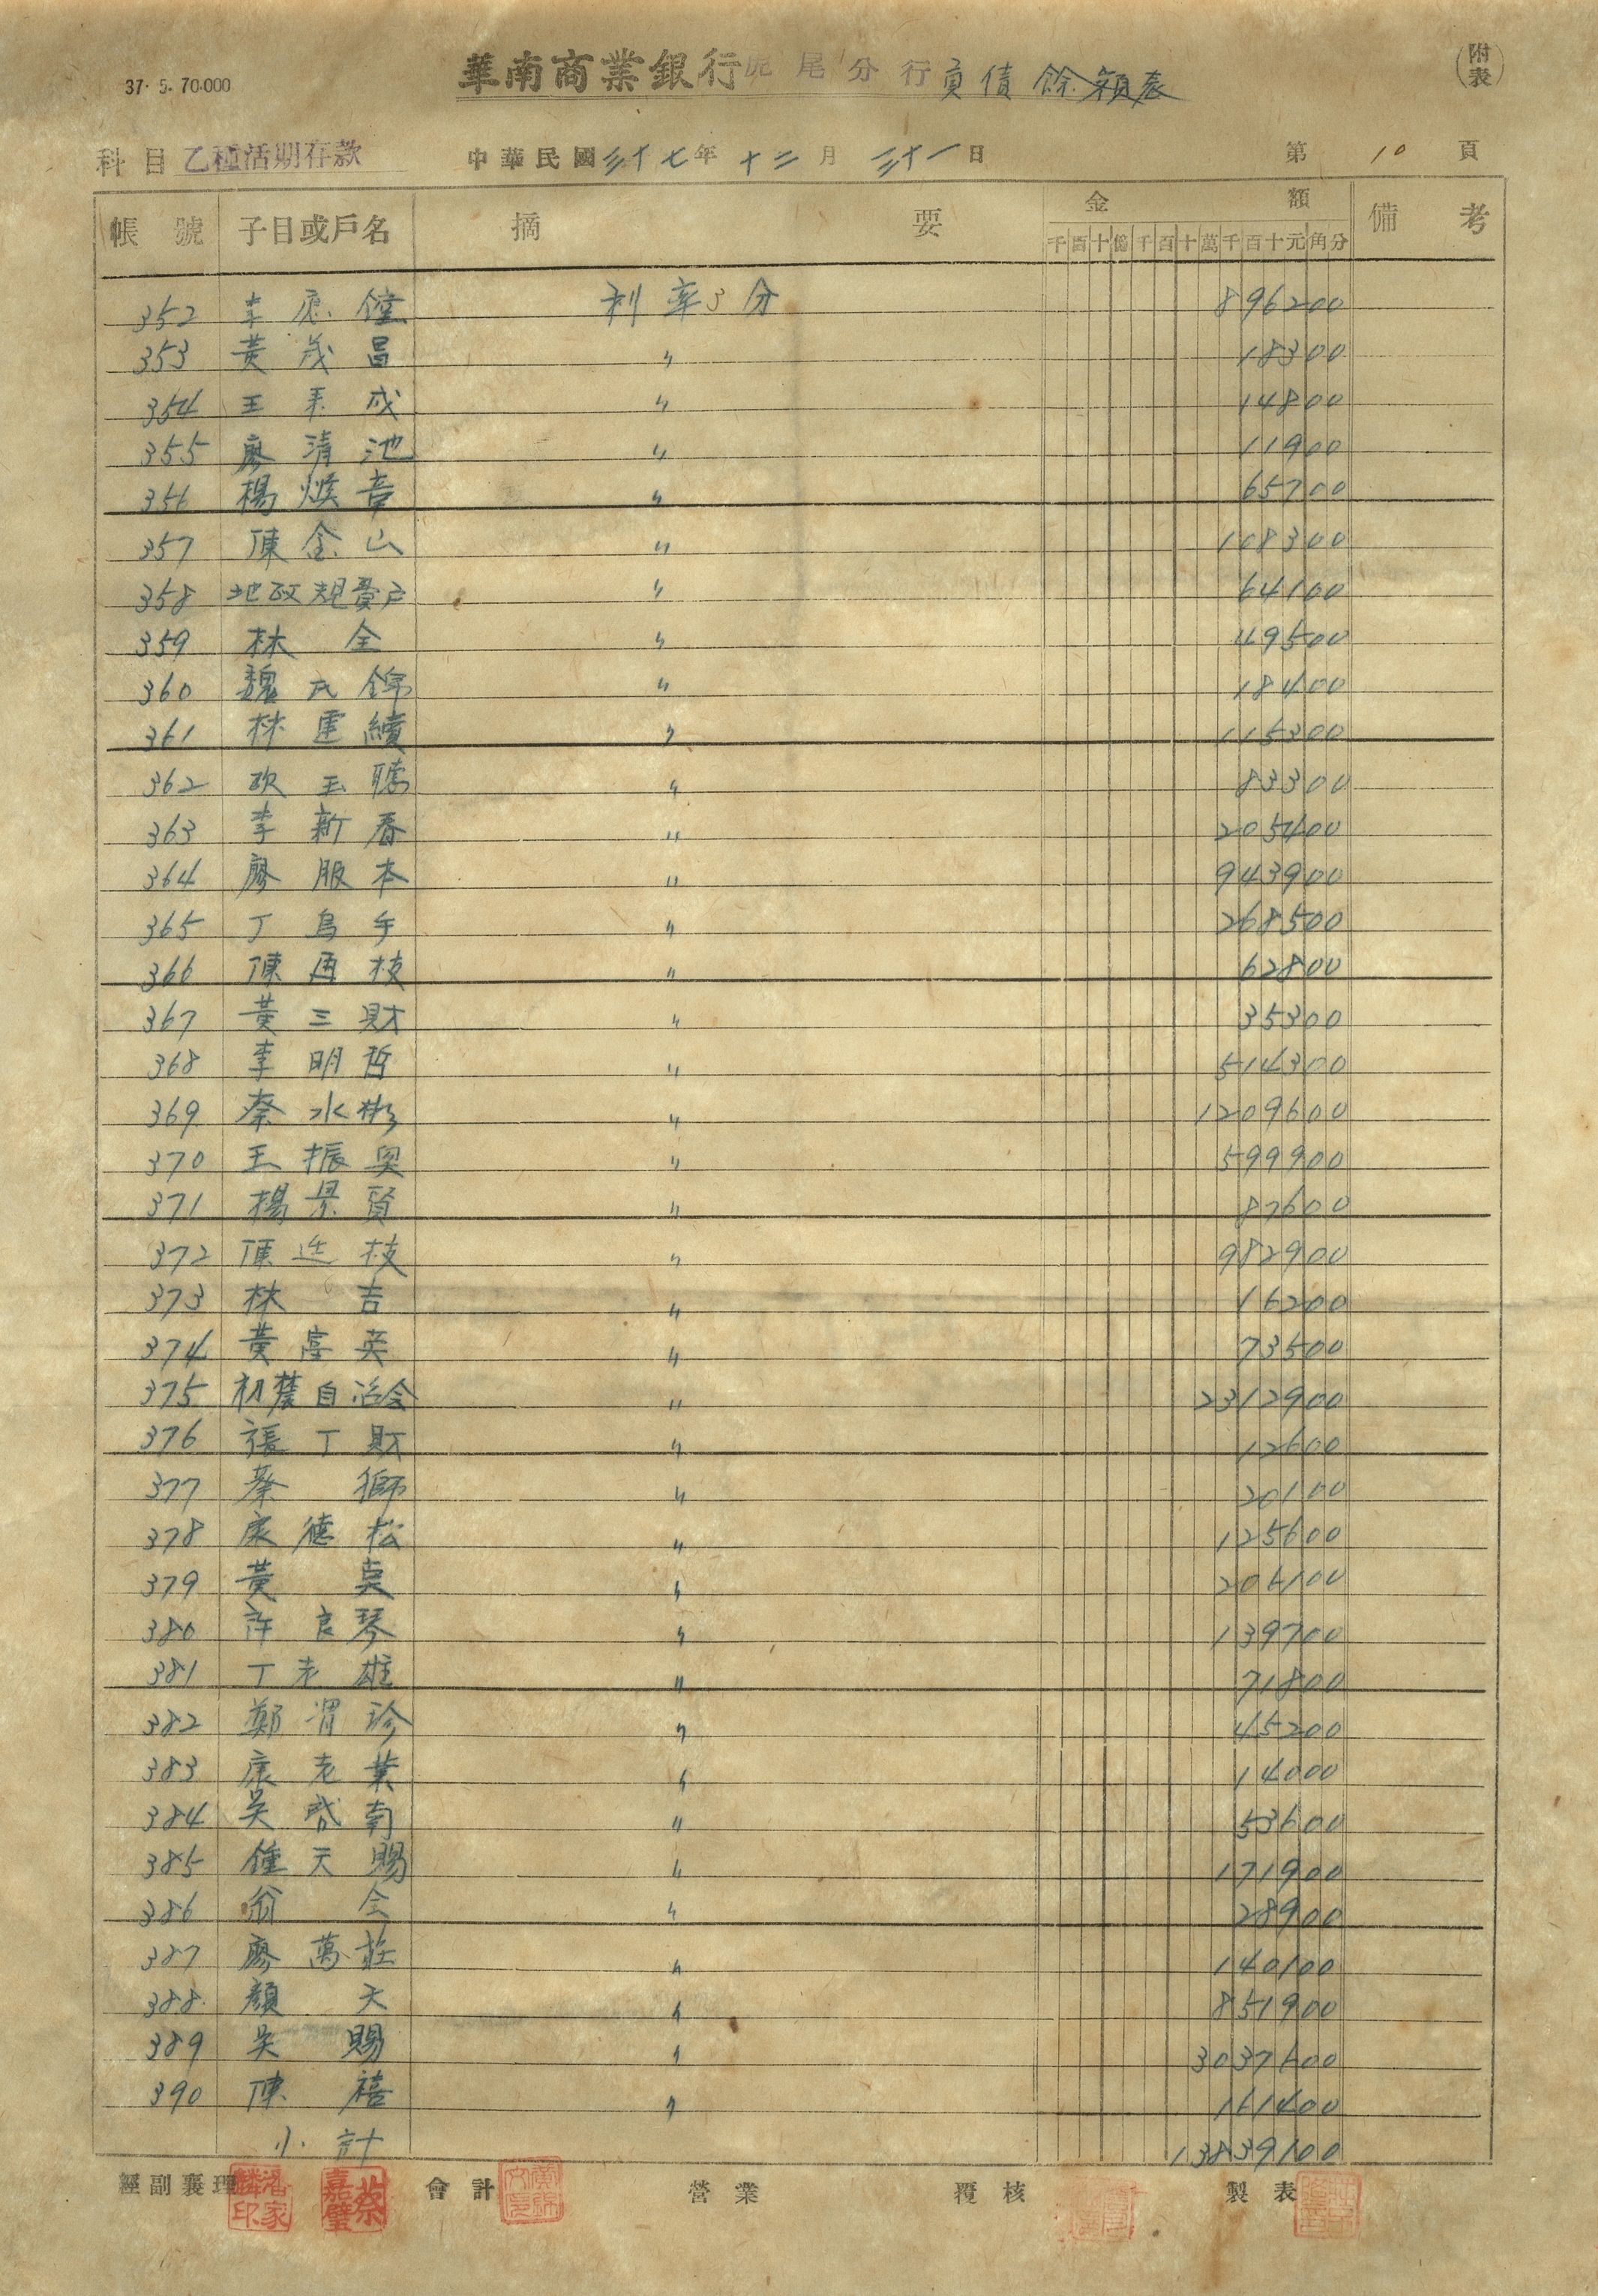 37. 5. 70.000
華南商業銀行虎尾分行負債餘額表
附表
科目 乙種活期存款 中華民國三十七年十二月三十一日 第10頁
帳號 子目或戶名 摘要 金額 備考
千百十億千百十萬千百十元角分
352 李應鐘 利率3分 896200
353 黃茂昌 〃 18300
354 王 成 〃 14800
355 廖清池 〃 11900
356 楊煥章 〃 65700
357 陳金山 〃 108300
358 地政規費戶 〃 64100
359 林全 〃 49500
360 魏氏錦 〃 18400
361 林 續 〃 115300
362 歐玉聰 〃 83300
363 李新春 〃 205400
364 廖服本 〃 943900
365 丁烏手 〃 268500
366 陳再枝 〃 62800
367 黃三財 〃 35300
368 李明哲 〃 514300
369 蔡水彬 〃 1209600
370 王振奧 〃 599900
371 楊景賢 〃 87600
372 陳 枝 〃 982900
373 林吉 〃 16200
374 黃 英 〃 73500
375 初農自治会 〃 2312900
376 張丁財 〃 12600
377 蔡獅 〃 20100
378 康德松 〃 125600
379 黃 〃 206100
380 許良琴 〃 139700
381 丁老雄 〃 71800
382 鄭渭珍 〃 45200
383 康老葉 〃 14000
384 吳啓南 〃 53600
385 鍾天賜 〃 171900
386 翁全 〃 28900
387 廖萬莊 〃 140100
388 顏天 〃 851900
389 吳賜 〃 3037600
390 陳禧 〃 161400
小計 13839100
經副襄理 潘家麟印 蔡嘉璧 會計 營業 覆核 製表